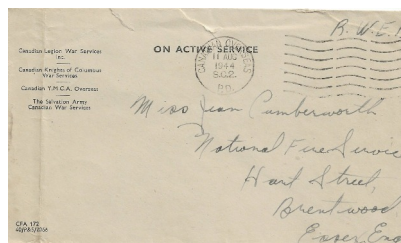 Canadian Legion War Services
Inc.
Canadian Knights of Columbus
War Services
Canadian Y.M.C.A. Overseas
The Salvation Army
Canadian War Services
ON ACTIVE SERVICE
CANADIAN OVERSEAS
11 AUG
1944
S.C.2.
P.O.
R.W.E.
Miss Jean Cumberworth
National Fire Service
Hart Street,
Brentwood
Essex, Eng
CFA 172